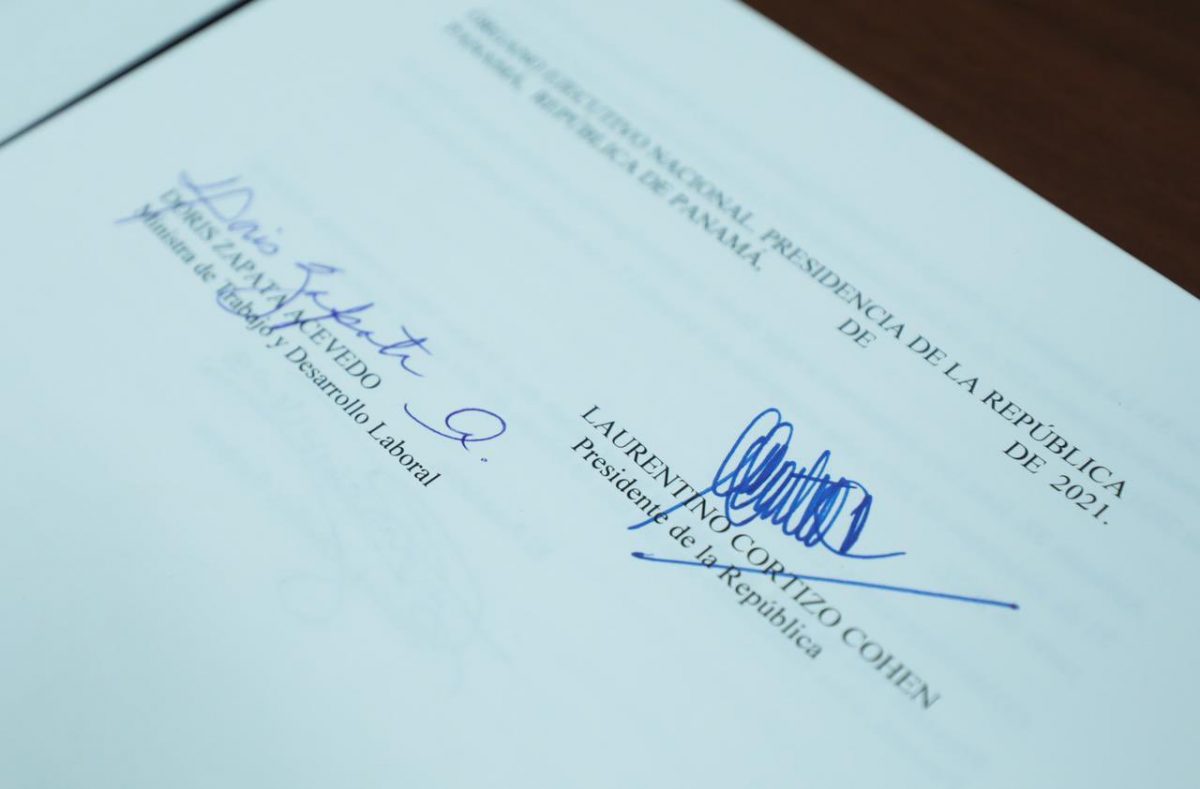 ÓRGANO EJECUTIVO NACIONAL. PRESIDENCIA DE LA REPÚBLICA
PANAMÁ, REPÚBLICA DE PANAMÁ,
DE
DE 2021.
Doris Zapata A.
DORIS ZAPATA ACEVEDO
Ministra de Trabajo y Desarrollo Laboral
LAURENTINO CORTIZO COHEN
Presidente de la República